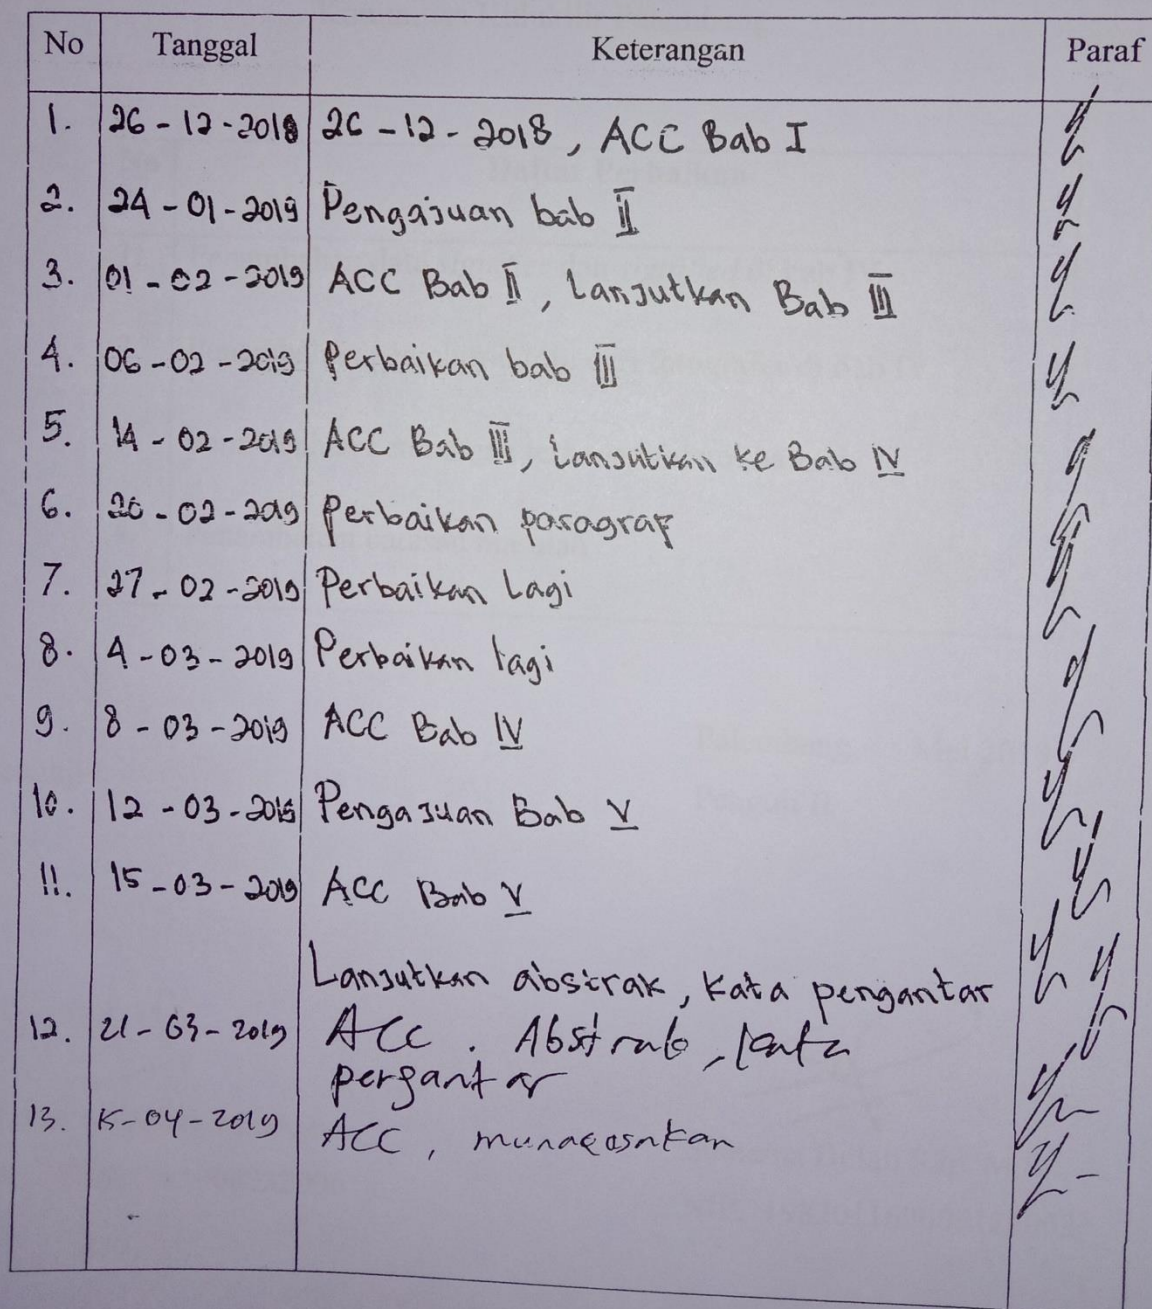 No Tanggal Keterangan Paraf
1. 26-12-2018 26-12-2018, ACC Bab I
2. 24-01-2019 Pengajuan bab II
3. 01-02-2019 ACC Bab II, Lanjutkan Bab III
4. 06-02-2019 Perbaikan bab III
5. 14-02-2019 ACC Bab III, Lanjutkan ke Bab IV
6. 26-02-2019 Perbaikan paragraf
7. 27-02-2019 Perbaikan Lagi
8. 4-03-2019 Perbaikan lagi
9. 8-03-2019 ACC Bab IV
10. 12-03-2019 Pengajuan Bab V
11. 15-03-2019 ACC Bab V
Lanjutkan abstrak, Kata pengantar
12. 21-03-2019 ACC. Abstrak, kata
pengantar
13. 15-04-2019 ACC, munaqasakan